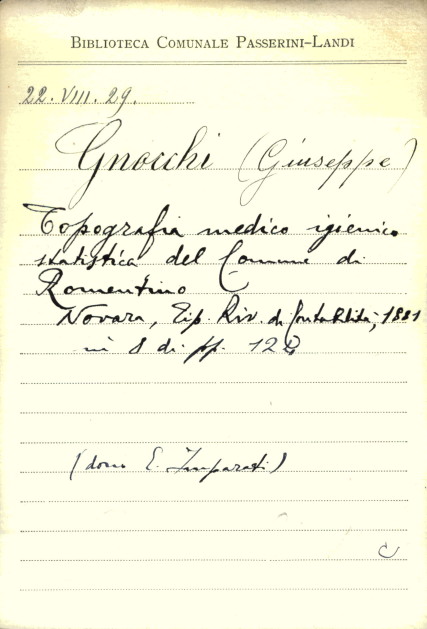 BIBLIOTECA COMUNALE PASSERINI-LANDI
22.VIII.29.
Gnocchi (Giuseppe)
Topografia medico igienico
statistica del Comune di
Romentino
Novara, Tip. Riv. di Contabilità, 1881
in 8 di pp. 12
(dono E. Imparati)
C